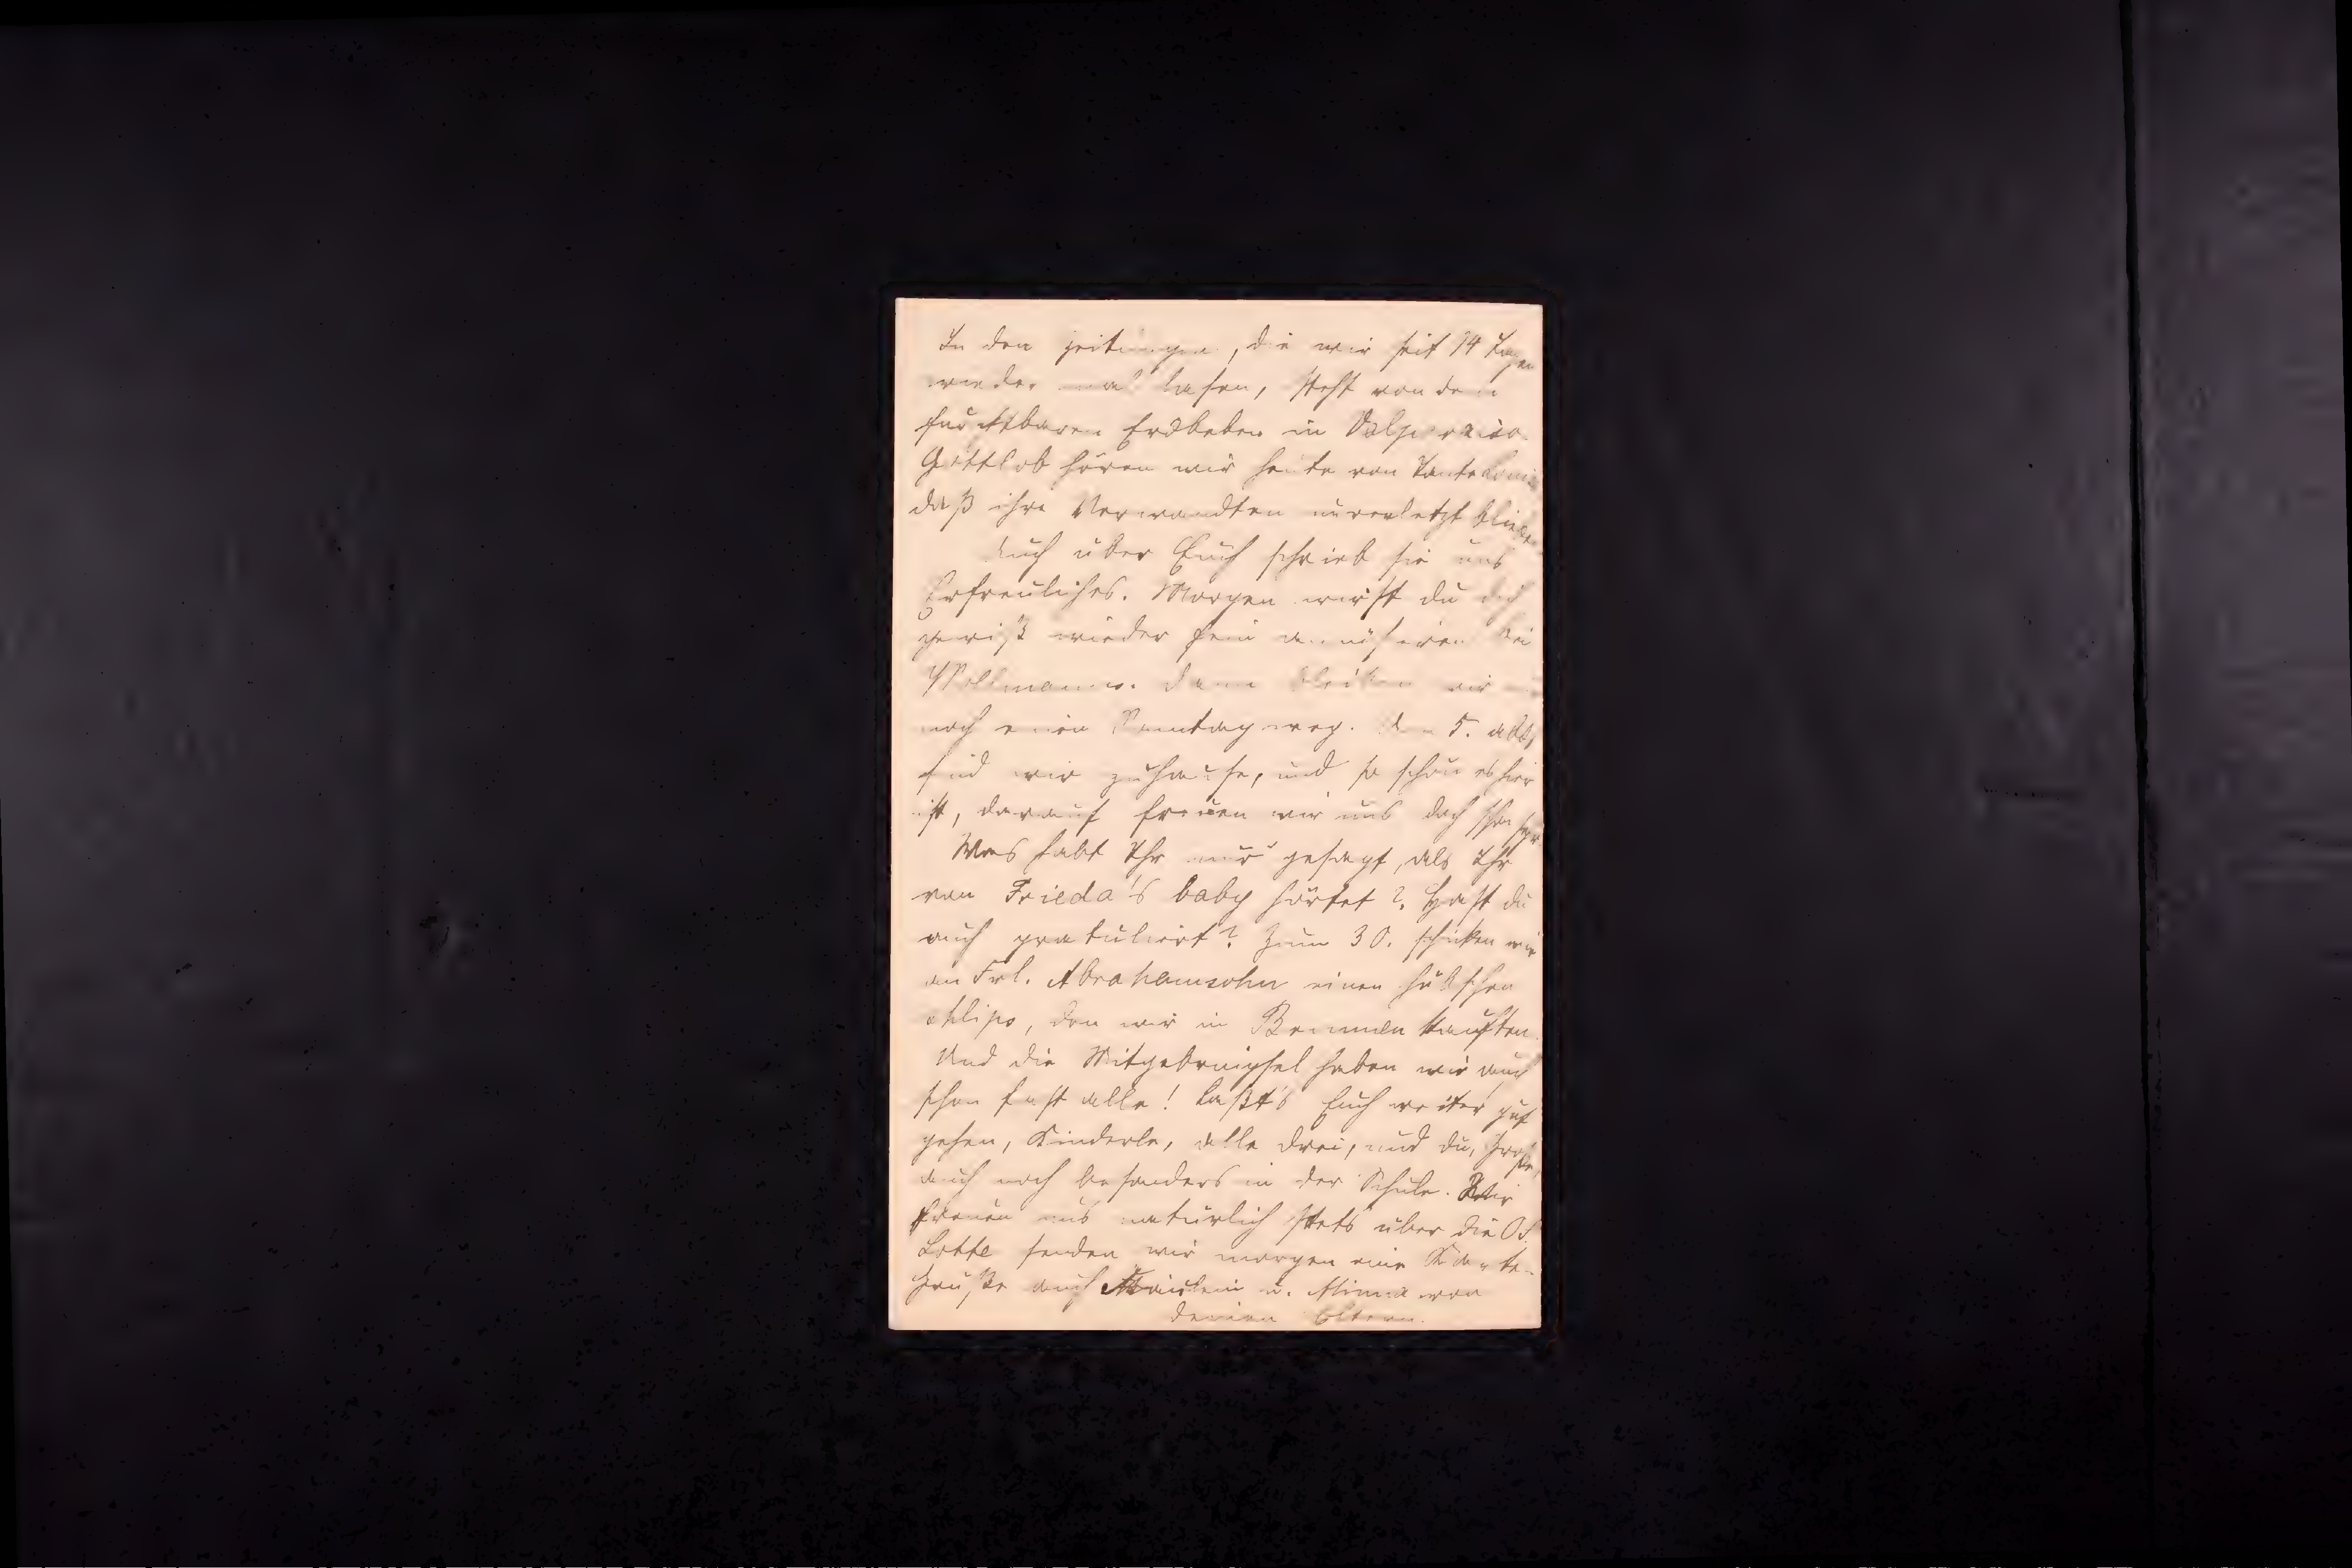 In den Zeitungen, die wir seit 14 Tagen
wieder mal lasen, steht von dem
furchtbaren Erdbeben in Valparaiso.
Gottlob hören wir heute von Tante
daß ihre Verwandten unverletzt blieben
Auch über Euch schrieb sie uns
Erfreuliches. Morgen wirst du doch
gewiß wieder fein bei
Wollmanns. Dann bleiben wir nur
noch einen Sonntag weg. Am 5. abds
sind wir zuhause, und so schön es hier
ist, darauf freuen wir uns doch schon sehr
Was habt Ihr nur gesagt, als Ihr
von Frieda's baby hörtet? Hast du
auch gratuliert? Zum 30. schicken wir
an Frl. Abrahamsohn einen hübschen
Schlips, den wir in kauften.
Und die Mitgebringsel haben wir auch
schon fast alle! Laßt's Euch weiter gut
gehen, Kinderle, alle drei, und du, Große,
auch noch besonders in der Schule. Wir
freuen uns natürlich stets über die
Lotte senden wir morgen eine Karte.
Grüße auch Fräulein u. Minna von
Deinen Eltern.